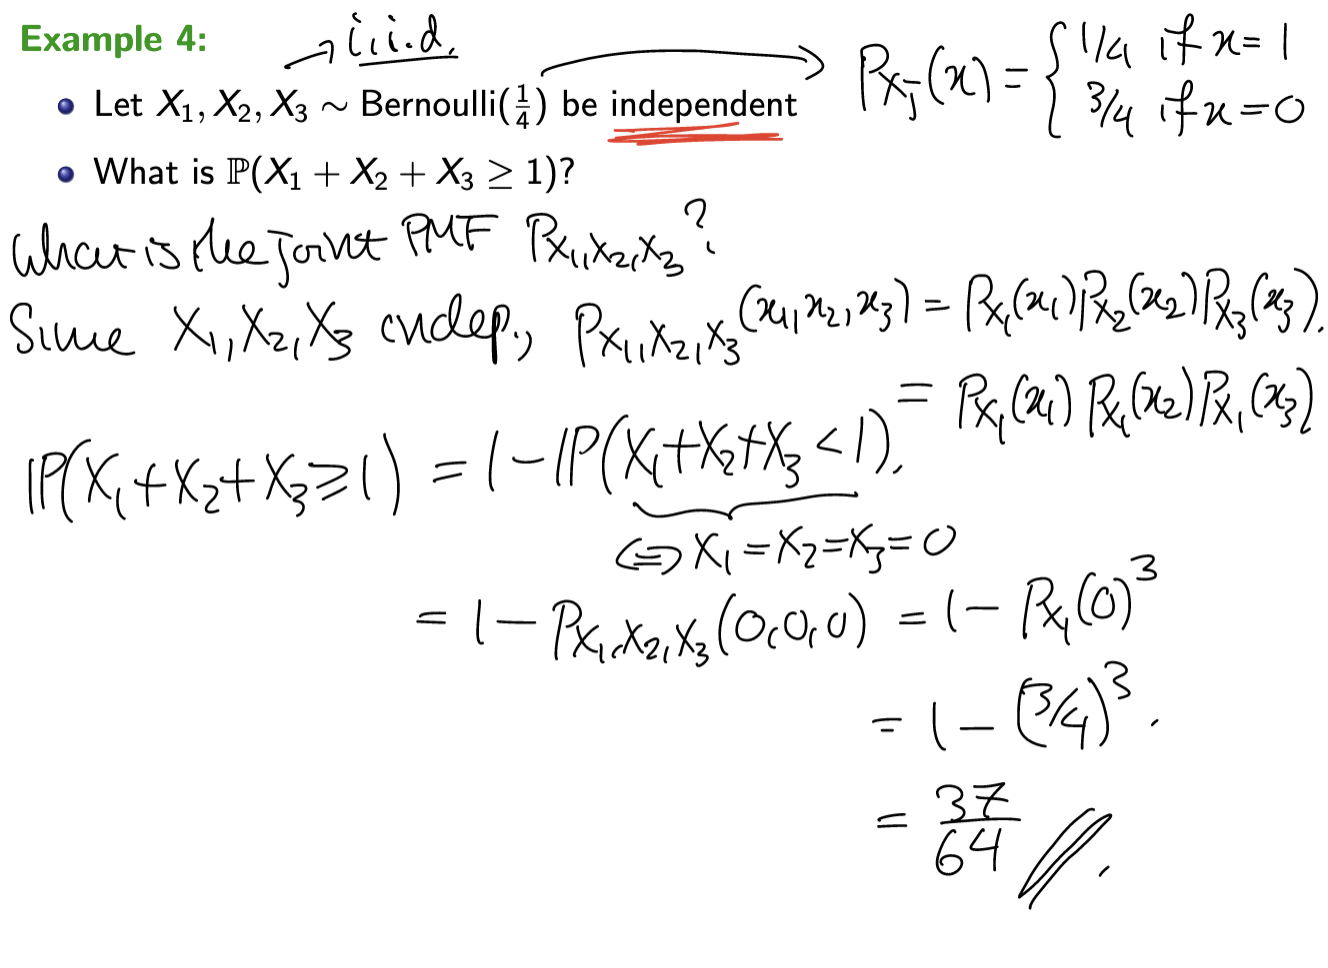 Example 4:
→ i.i.d.
• Let X₁, X₂, X₃ ∼ Bernoulli(1/4) be independent
P_{X_j}(x) = { 1/4 if x = 1
3/4 if x = 0
• What is ℙ(X₁ + X₂ + X₃ ≥ 1)?
What is the joint PMF P_{X₁,X₂,X₃}?
Since X₁, X₂, X₃ indep., P_{X₁,X₂,X₃}(x₁,x₂,x₃) = P_{X₁}(x₁)P_{X₂}(x₂)P_{X₃}(x₃).
= P_{X₁}(x₁) P_{X₁}(x₂) P_{X₁}(x₃)
ℙ(X₁+X₂+X₃ ≥ 1) = 1 − ℙ(X₁+X₂+X₃ < 1).
⇔ X₁ = X₂ = X₃ = 0
= 1 − P_{X₁,X₂,X₃}(0,0,0) = 1 − P_{X₁}(0)³
= 1 − (3/4)³.
= 37/64